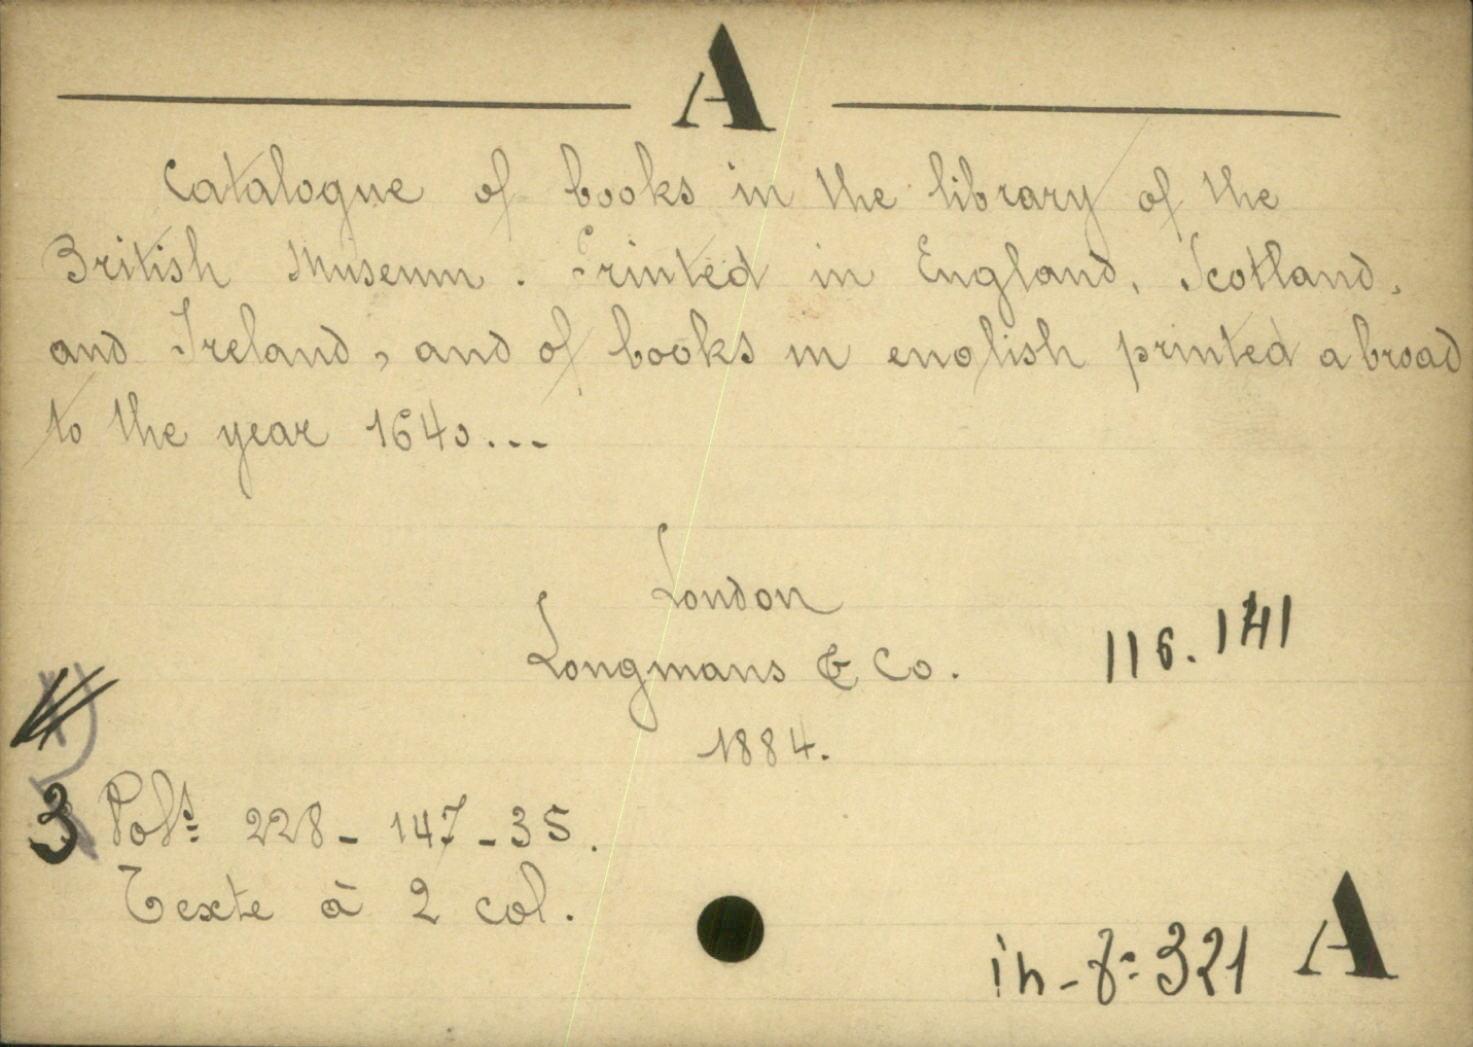 A
Catalogue of books in the library of the
British Museum. Printed in England, Scotland,
and Ireland, and of books in english printed abroad
to the year 1640...
London
Longmans & Co.
116.141
1884.
3 Vols 228 - 147 - 35.
Texte à 2 col.
in-8º 321 A